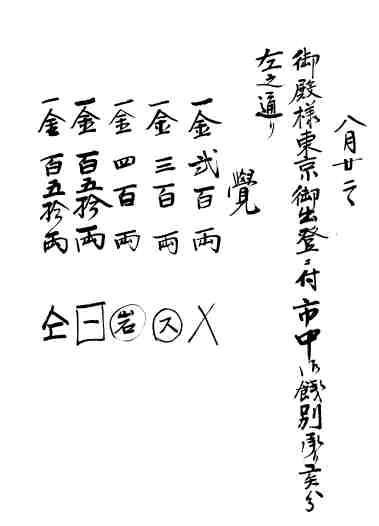 八月廿二
御殿様東京御出登ニ付市中御餞別
左之通り
覺
一金 弐百両
一金 三百両 ス
一金 四百両 岩
一金 百五拾両 一
一金 百五拾両 仝